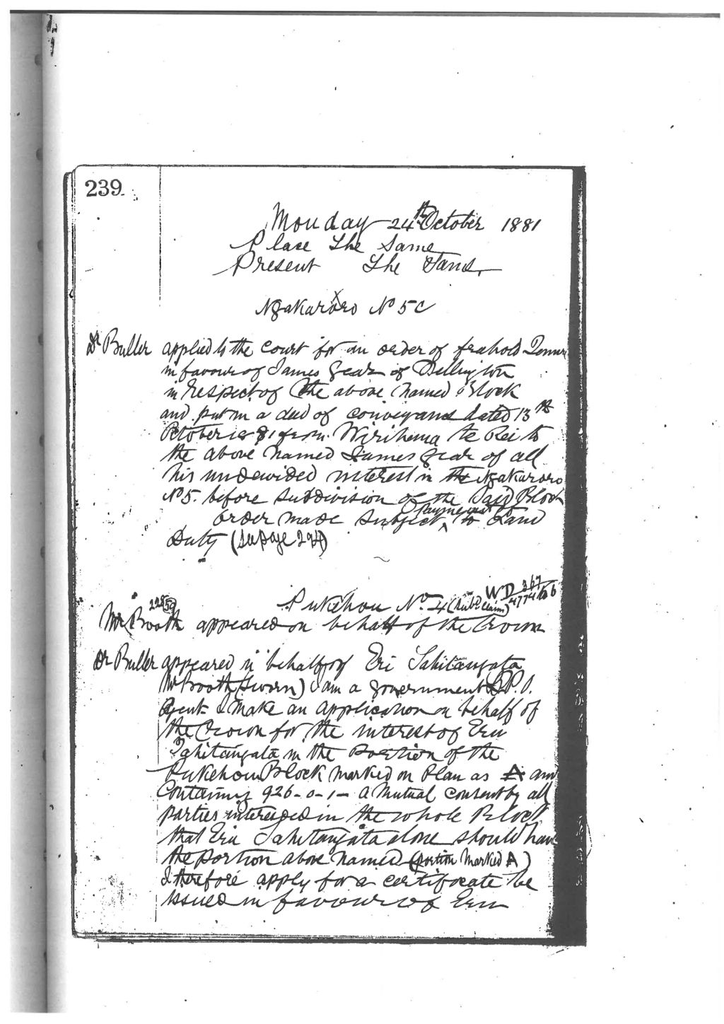 239.
Monday 24th October 1881
Place The Same
Present The Same
Ngakaroro No 5C
Dr Buller applied to the Court for an order of freehold Tenure
in favour of James Gear of Wellington
in respect of the above named Block
and put in a deed of conveyance dated 13th
October 1881 from Wirihana te Rei to
the above named James Gear of all
his undivided interest in the Ngakaroro
No 5. before subdivision of the said Block
Order made subject to payment Land
Duty (See page 291)
Pukehou No. 4 WD
Mr Booth appeared on behalf of the Crown
Dr Buller appeared in behalf of Eru Tahitangata
Mr Booth (Sworn) I am a government L.P.
Agent I make an application on behalf of
the Crown for the interest of Eru
Tahitangata in the portion of the
Pukehou Block marked on Plan as A and
Containing 926-0-1- a Mutual consent by all
parties interested in the whole Block
that Eru Tahitangata alone should have
the portion above named (portion Marked A)
I therefore apply for a certificate be
issued in favour of Eru